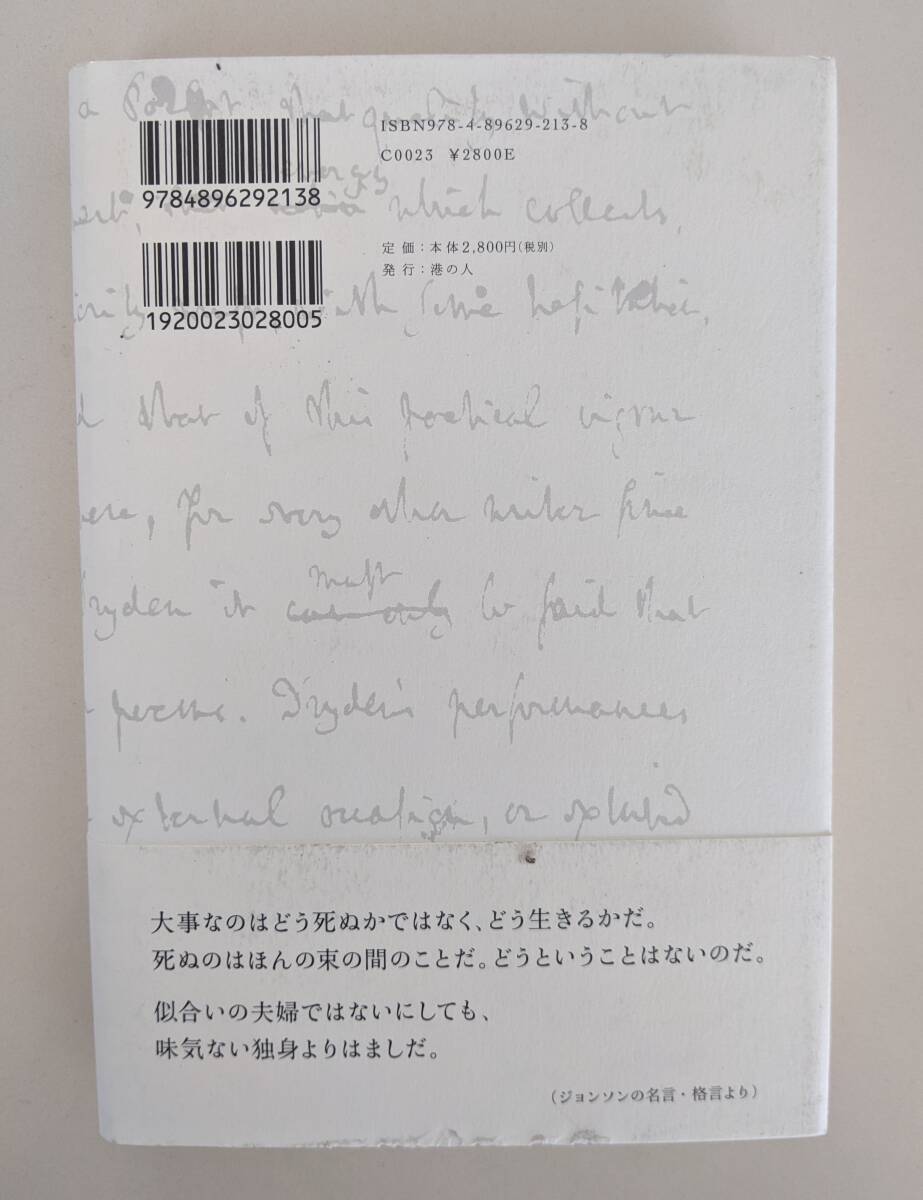 a Poet that quality without
ISBN978-4-89629-213-8
C0023 ¥2800E
energy
9784896292138
which collects,
定価：本体2,800円（税別）
発行：港の人
1920023028005
with some hesitation,
that of this poetical vigour
, for every other writer since
ryden it can only must be said that
poems. Dryden's performances
external occasion, or
大事なのはどう死ぬかではなく、どう生きるかだ。
死ぬのはほんの束の間のことだ。どうということはないのだ。
似合いの夫婦ではないにしても、
味気ない独身よりはましだ。
（ジョンソンの名言・格言より）